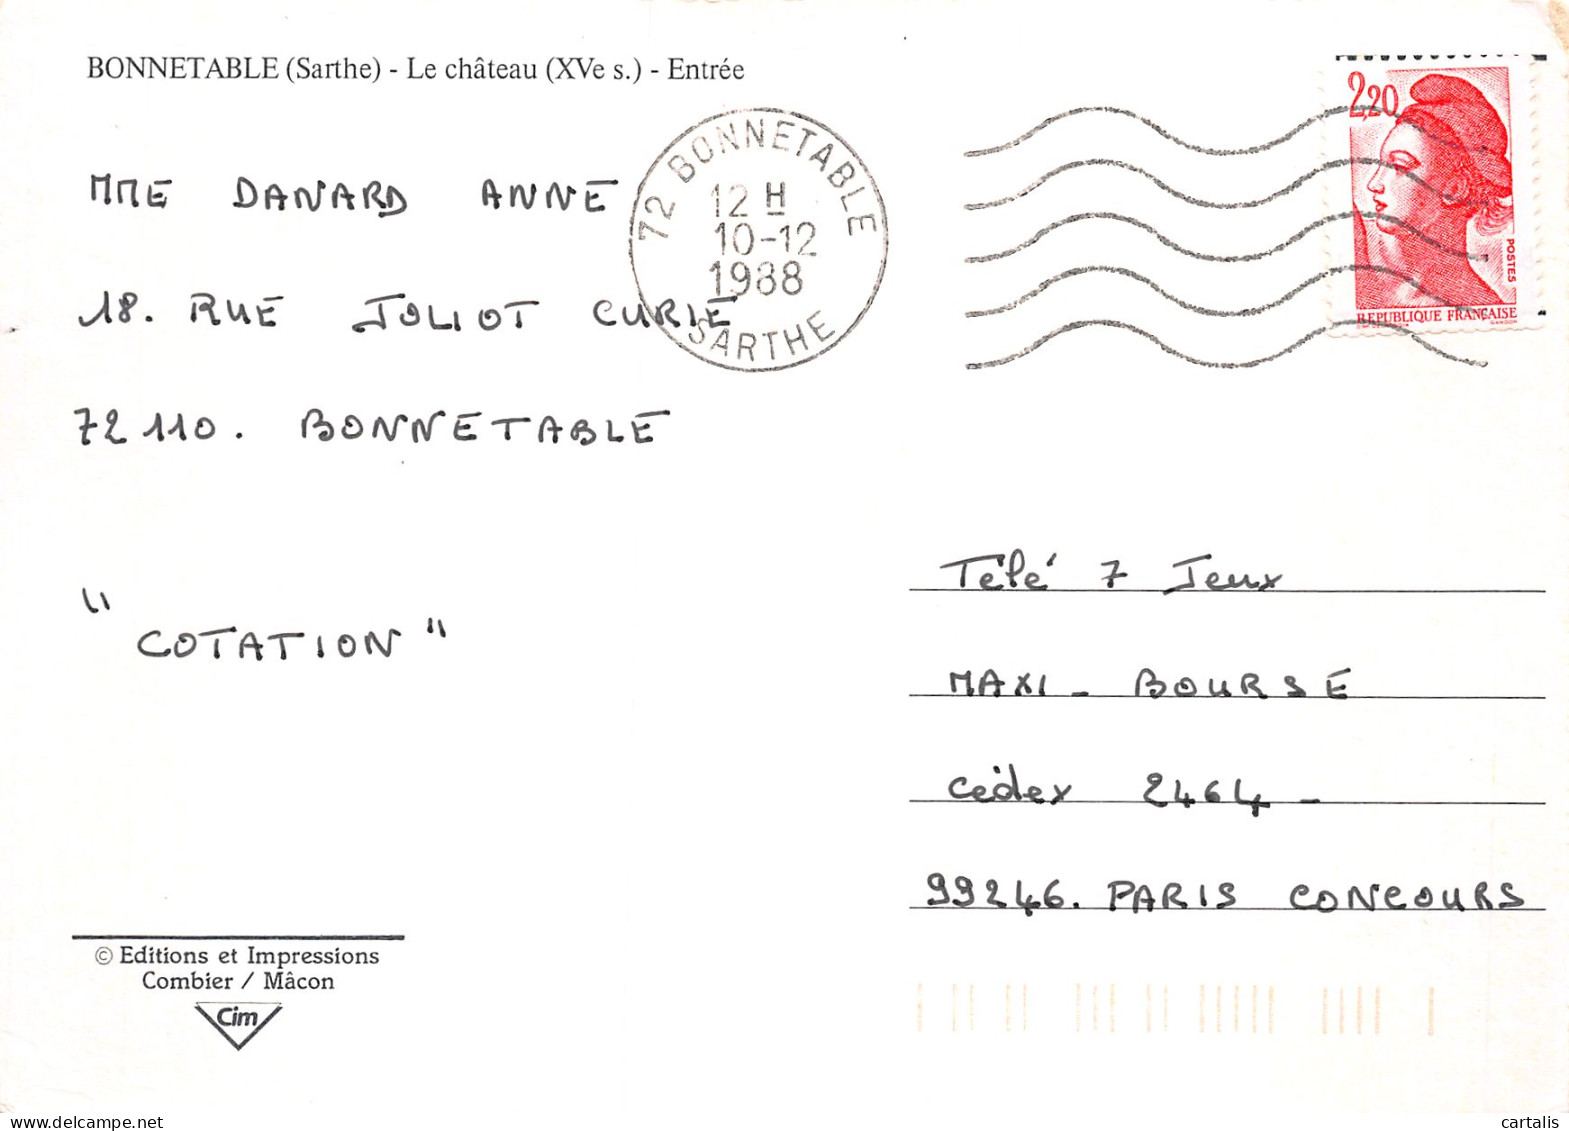 BONNETABLE (Sarthe) - Le château (XVe s.) - Entrée
MME DANARD ANNE
18. RUE JOLIOT CURIE
72110. BONNETABLE
"COTATION"
72 BONNETABLE
12 H
10-12
1988
SARTHE
2,20
POSTES
REPUBLIQUE FRANÇAISE
Télé 7 Jeux
MAXI - BOURSE
Cédex 2464 -
99246. PARIS CONCOURS
© Editions et Impressions
Combier / Mâcon
Cim
delcampe.net
cartalis